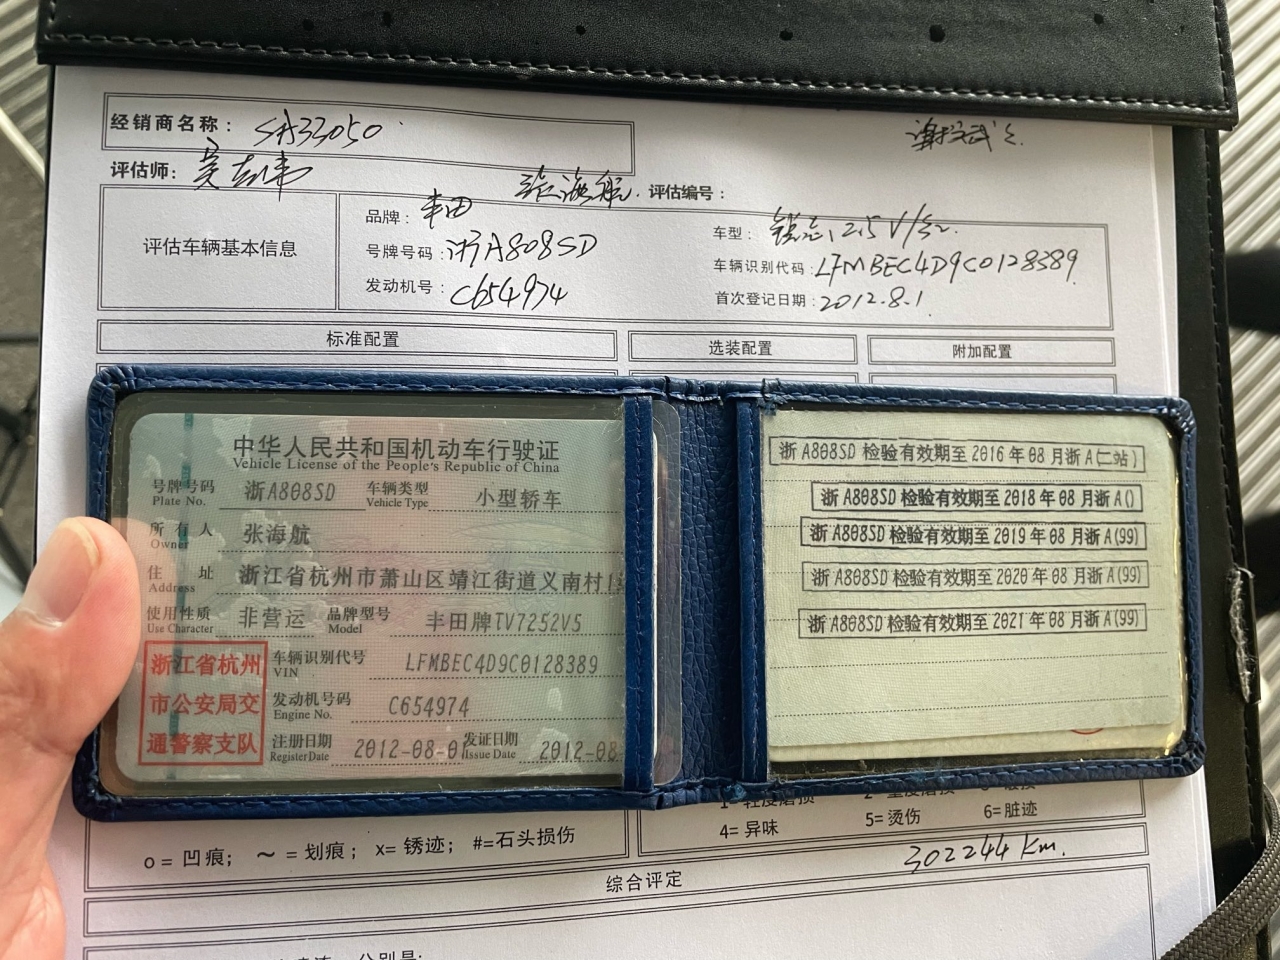 经销商名称： SA33050
评估师：
张海航 评估编号：
评估车辆基本信息
品牌： 丰田
车型： 锐志 2.5V/
号牌号码： 浙A808SD
车辆识别代码：LFMBEC4D9C0128389
发动机号： C654974
首次登记日期：2012.8.1
标准配置 选装配置 附加配置
中华人民共和国机动车行驶证
Vehicle License of the People's Republic of China
号牌号码 浙A808SD 车辆类型 小型轿车
Plate No. Vehicle Type
所有人 张海航
Owner
住址 浙江省杭州市萧山区靖江街道义南村1
Address
使用性质 非营运 品牌型号 丰田牌TV7252V5
Use Character Model
浙江省杭州
市公安局交
通警察支队
车辆识别代号 LFMBEC4D9C0128389
VIN
发动机号码 C654974
Engine No.
注册日期 2012-08-01 发证日期 2012-08
Register Date Issue Date
浙A808SD 检验有效期至2016年08月浙A(二站)
浙A808SD 检验有效期至2018年08月浙A()
浙A808SD 检验有效期至2019年08月浙A(99)
浙A808SD 检验有效期至2020年08月浙A(99)
浙A808SD 检验有效期至2021年08月浙A(99)
1=轻度磨损 2=重度磨损
4=异味 5=烫伤 6=脏迹
o=凹痕； ～=划痕； x=锈迹； #=石头损伤
302244 Km.
综合评定